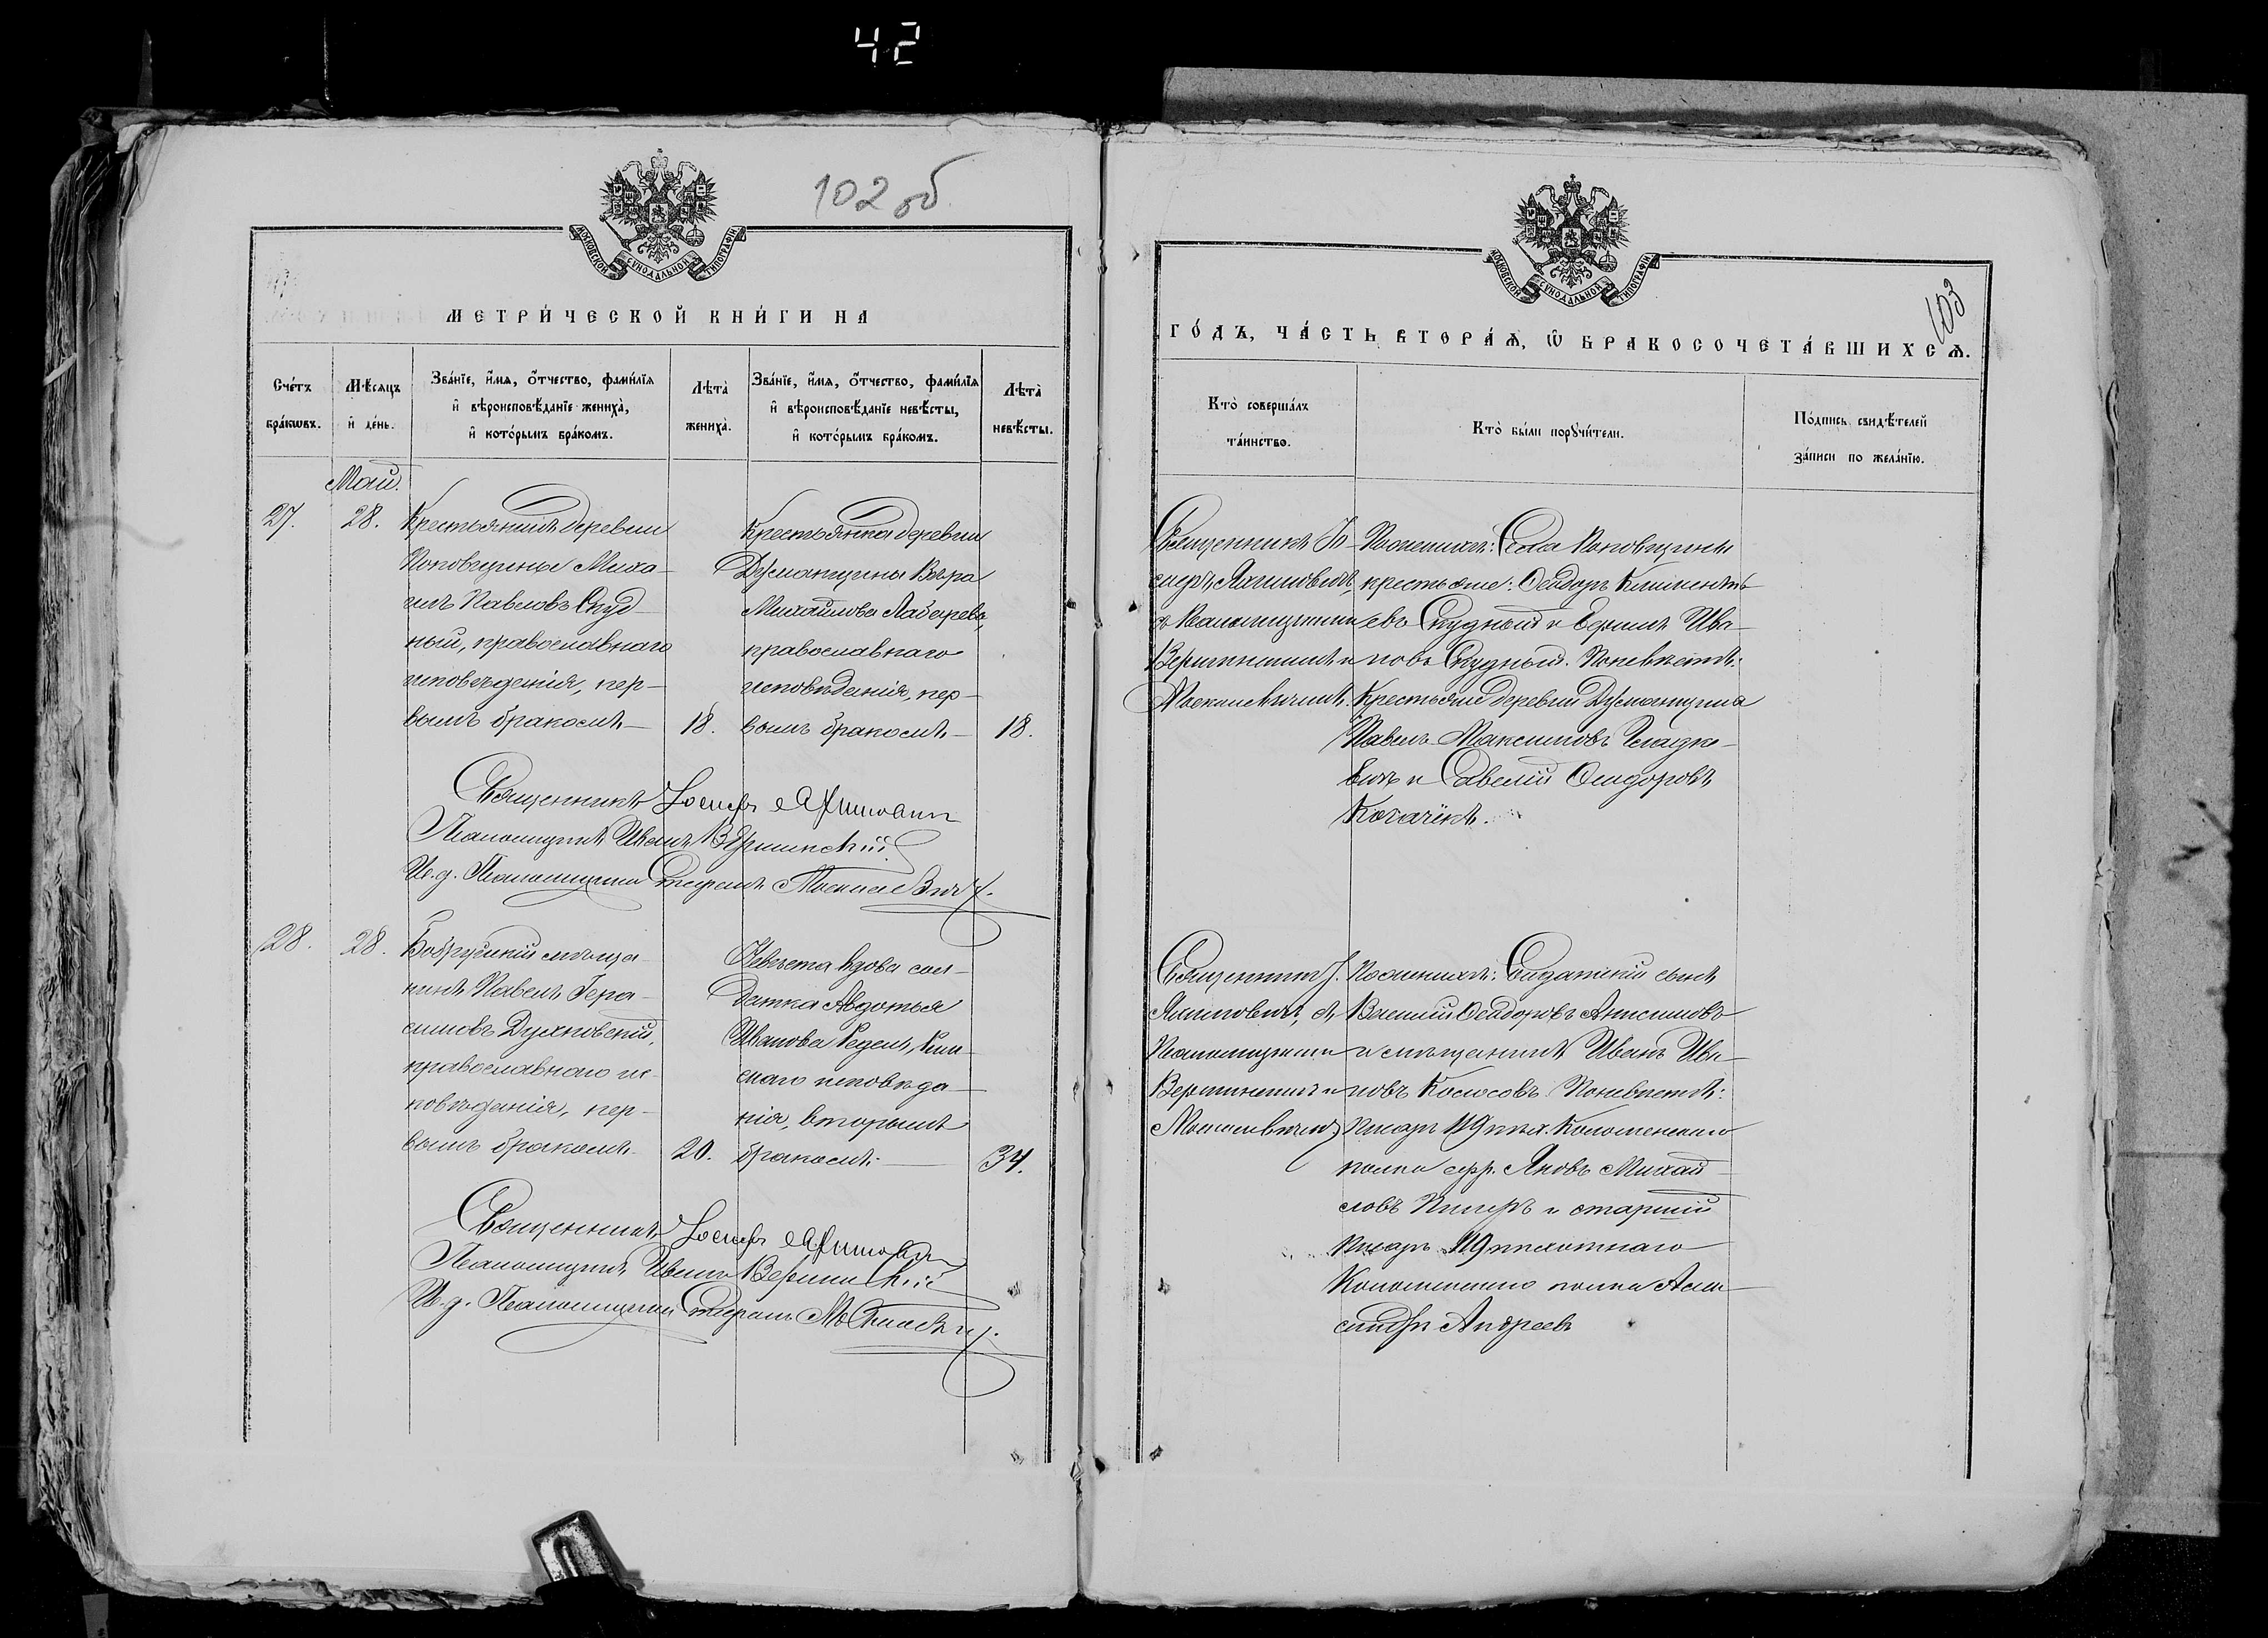 42
102 об
МОСКОВСКОЙ СѴНОДАЛЬНОЙ ТИПОГРАФІИ
МЕТРИ́ЧЕСКОЙ КНИ́ГИ НА
Сче́тъ бра́кωвъ.
Мѣ́сяцъ и҆ де́нь.
Зва́нїе, и҆́мѧ, ѻ҆́тчество, фами́лїѧ
и҆ вѣроисповѣ́данїе жениха̀,
и҆ кото́рымъ бра́комъ.
Лѣта̀ жениха̀.
Зва́нїе, и҆́мѧ, ѻ҆́тчество, фами́лїѧ
и҆ вѣроисповѣ́данїе невѣ́сты,
и҆ кото́рымъ бра́комъ.
Лѣта̀ невѣ́сты.
Май.
27.
28.
Крестьянинъ деревни
Поповщины Миха-
илъ Павловъ Скуд-
ный, православнаго
исповѣданія, пер-
вымъ бракомъ
18.
Крестьянка деревни
Думанщины Вѣра
Михайлова
православнаго
исповѣданія, пер-
вымъ бракомъ
18.
Священникъ Іосифъ Яхимовичъ
Псаломщикъ Иванъ Вершинскій
И. д. Псаломщика Стефанъ
28.
28.
Бобруйскій мѣща-
нинъ Павелъ Гера-
симовъ
православнаго ис-
повѣданія, пер-
вымъ бракомъ.
20.
Невѣста вдова сол-
датка Авдотья
Иванова
исповѣда-
нія, вторымъ
бракомъ.
34.
Священникъ Іосифъ Яхимовичъ
Псаломщикъ Иванъ Вершинскій
И. д. Псаломщика Стефанъ
МОСКОВСКОЙ СѴНОДАЛЬНОЙ ТИПОГРАФІИ
103
ГО́ДЪ, ЧА́СТЬ ВТОРА́Ѧ, Ѽ БРАКОСОЧЕТА́ВШИХСѦ.
Кто̀ соверша́лъ та́инство.
Кто̀ бы́ли порꙋчи́тели.
По́дпись свидѣ́телей за́писи по жела́нїю.
Священникъ Іо-
сифъ Яхимовичъ,
съ Псаломщиками
Вершинскимъ и
По женихѣ: Села Поповщины
крестьяне: Ѳеодоръ Климентъ-
евъ Скудный и Ефимъ Ива-
новъ Скудный. По невѣстѣ:
Крестьяне деревни Думанщины
Павелъ Максимовъ
и Савелій Сидоровъ
Священникъ І.
Яхимовичъ, съ
Псаломщиками
Вершинскимъ и
По женихѣ: Солдатскій сынъ
Василій Ѳеодоровъ Анисимовъ
и мѣщанинъ Иванъ Ива-
новъ По невѣстѣ:
Писарь 119 пѣх. Коломенскаго
полка Яковъ Михай-
ловъ и старшій
писарь 119 пѣхотнаго
Коломенскаго полка Алек-
сандръ Андреевъ